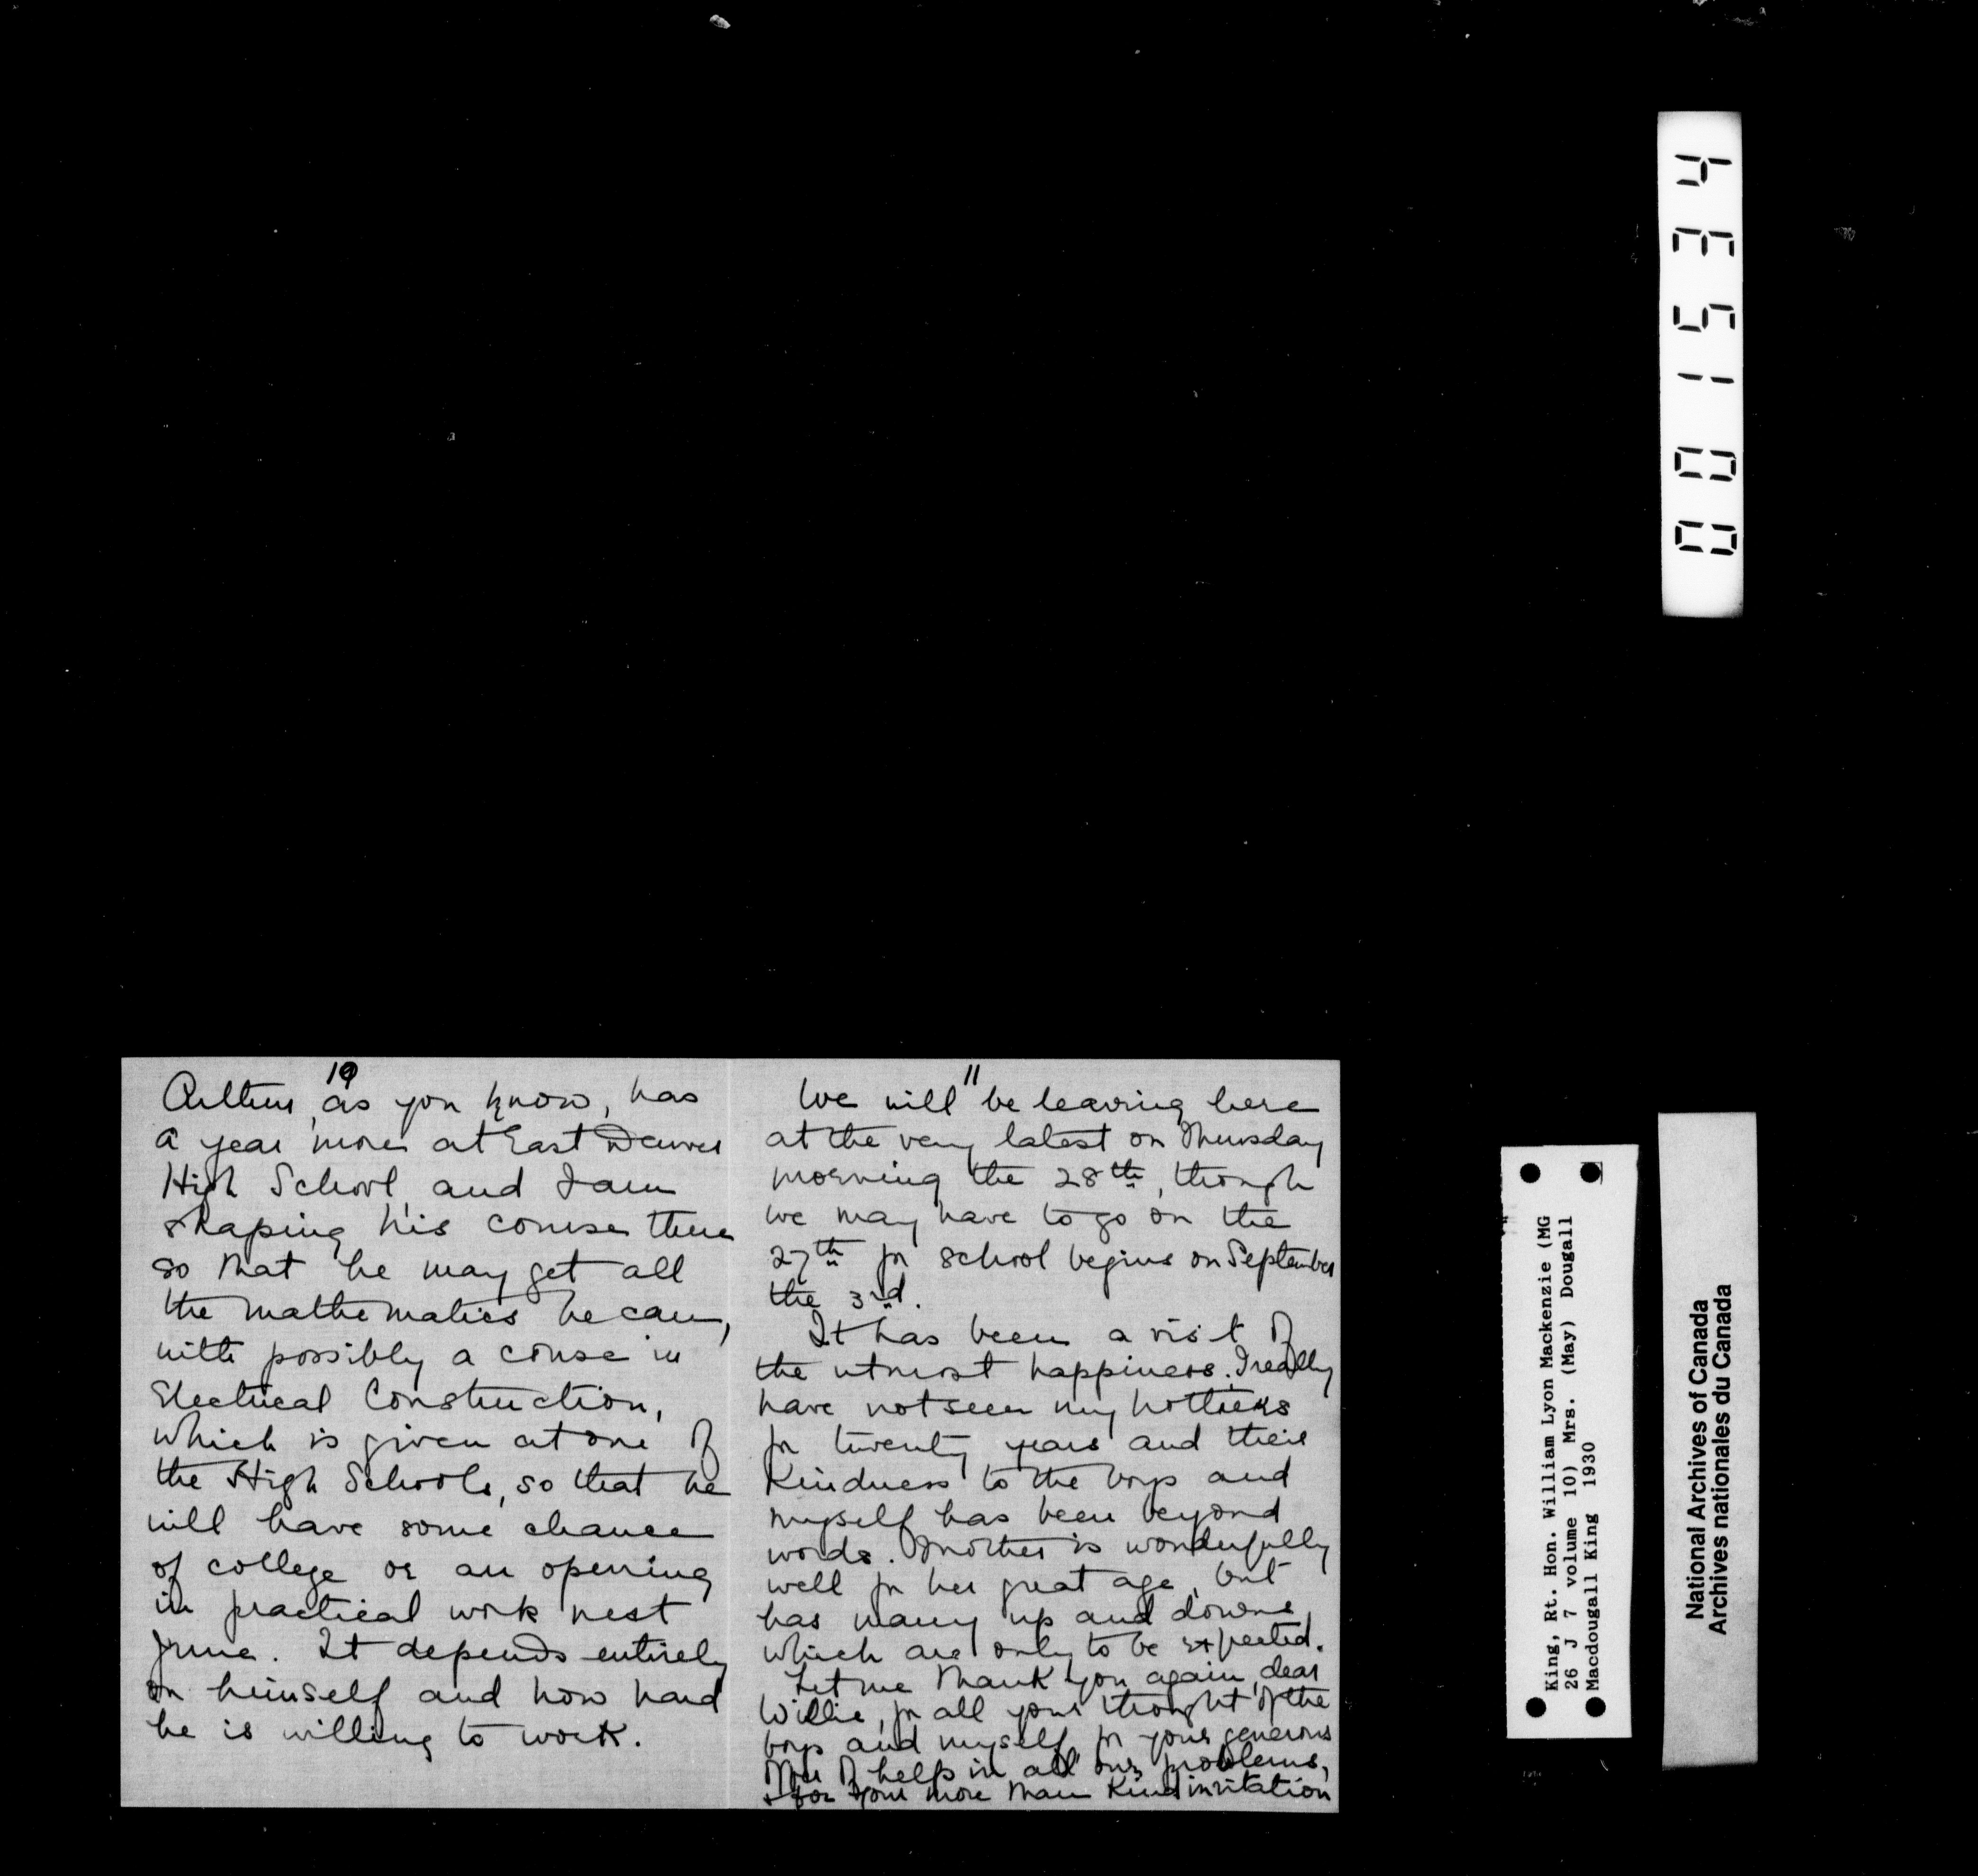 10
Arthur, as you know, has
a year more at East Denver
High School, and I am
shaping his course there
so that he may get all
the mathematics he can,
with possibly a course in
Electrical Construction,
which is given at one of
the High Schools, so that he
will have some chance
of college or an opening
in practical work next
June. It depends entirely
on himself and how hard
he is willing to work.
11
We will be leaving here
at the very latest on Thursday
morning the 28th, though
we may have to go on the
27th for school begins on September
the 3rd.
It has been a visit of
the utmost happiness. I really
have not seen my brothers
for twenty years and their
kindness to the boys and
myself has been beyond
words. Mother is wonderfully
well for her great age, but
has many up and downs,
which are only to be expected.
Let me thank you again, dear
Willie, for all your thought of the
boys and myself, for your generous
offer of help in all our problems,
& for your more than kind invitation
001534
King, Rt. Hon. William Lyon Mackenzie (MG
26 J 7 volume 10) Mrs. (May) Dougall
Macdougall King 1930
National Archives of Canada
Archives nationales du Canada